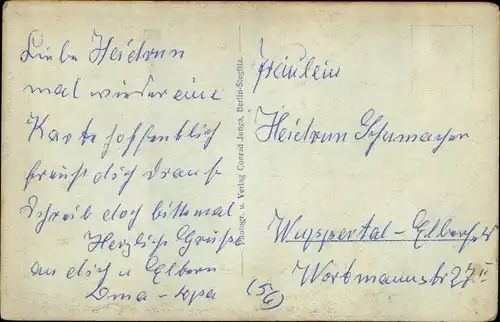 Liebe Heidrun
mal wieder eine
Karte hoffentlich
freust dich drauf
Schreib doch bittemal
Herzliche Grüße
an dich u Eltern
Oma - Opa
Photogr. u. Verlag Conrad Junga, Berlin-Steglitz.
Fräulein
Heidrun Schumacher
Wuppertal-Elberfeld
Wortmannstr 27 II
(56)